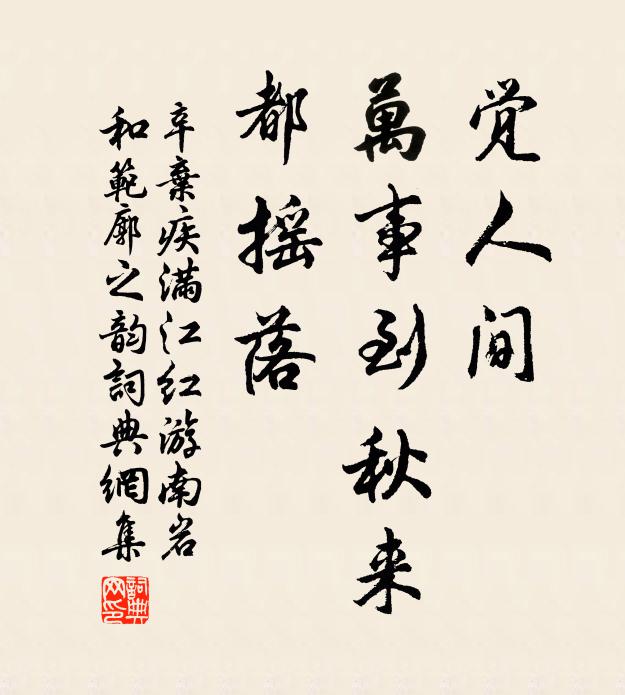 觉人间
萬事到秋来
都摇落
辛棄疾满江红游南岩
和範廓之韵詞典網集
詞典网印